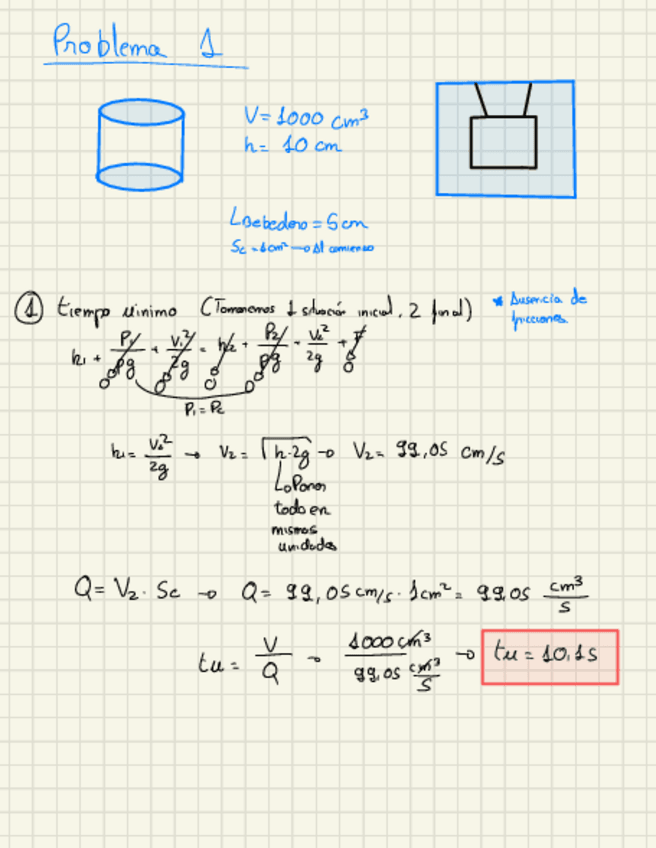 Problema 1
V = 1000 cm³
h = 10 cm
Lbebedero = 5cm
Sc = 1cm² → Al comienzo
① tiempo mínimo (Tomaremos 1 situación inicial, 2 final)
* Ausencia de
fricciones
h₁ + P₁/ρg + V₁²/2g = h₂ + P₂/ρg + V₂²/2g + F
0 0 0 0 0
P₁ = P₂
h₁ = V₂²/2g → V₂ = √h·2g → V₂ = 99,05 cm/s
↳ Poner
todo en
mismas
unidades
Q = V₂ · Sc → Q = 99,05 cm/s · 1cm² = 99,05 cm³/s
tu = V/Q → 1000 cm³ / 99,05 cm³/s → tu = 10,1s